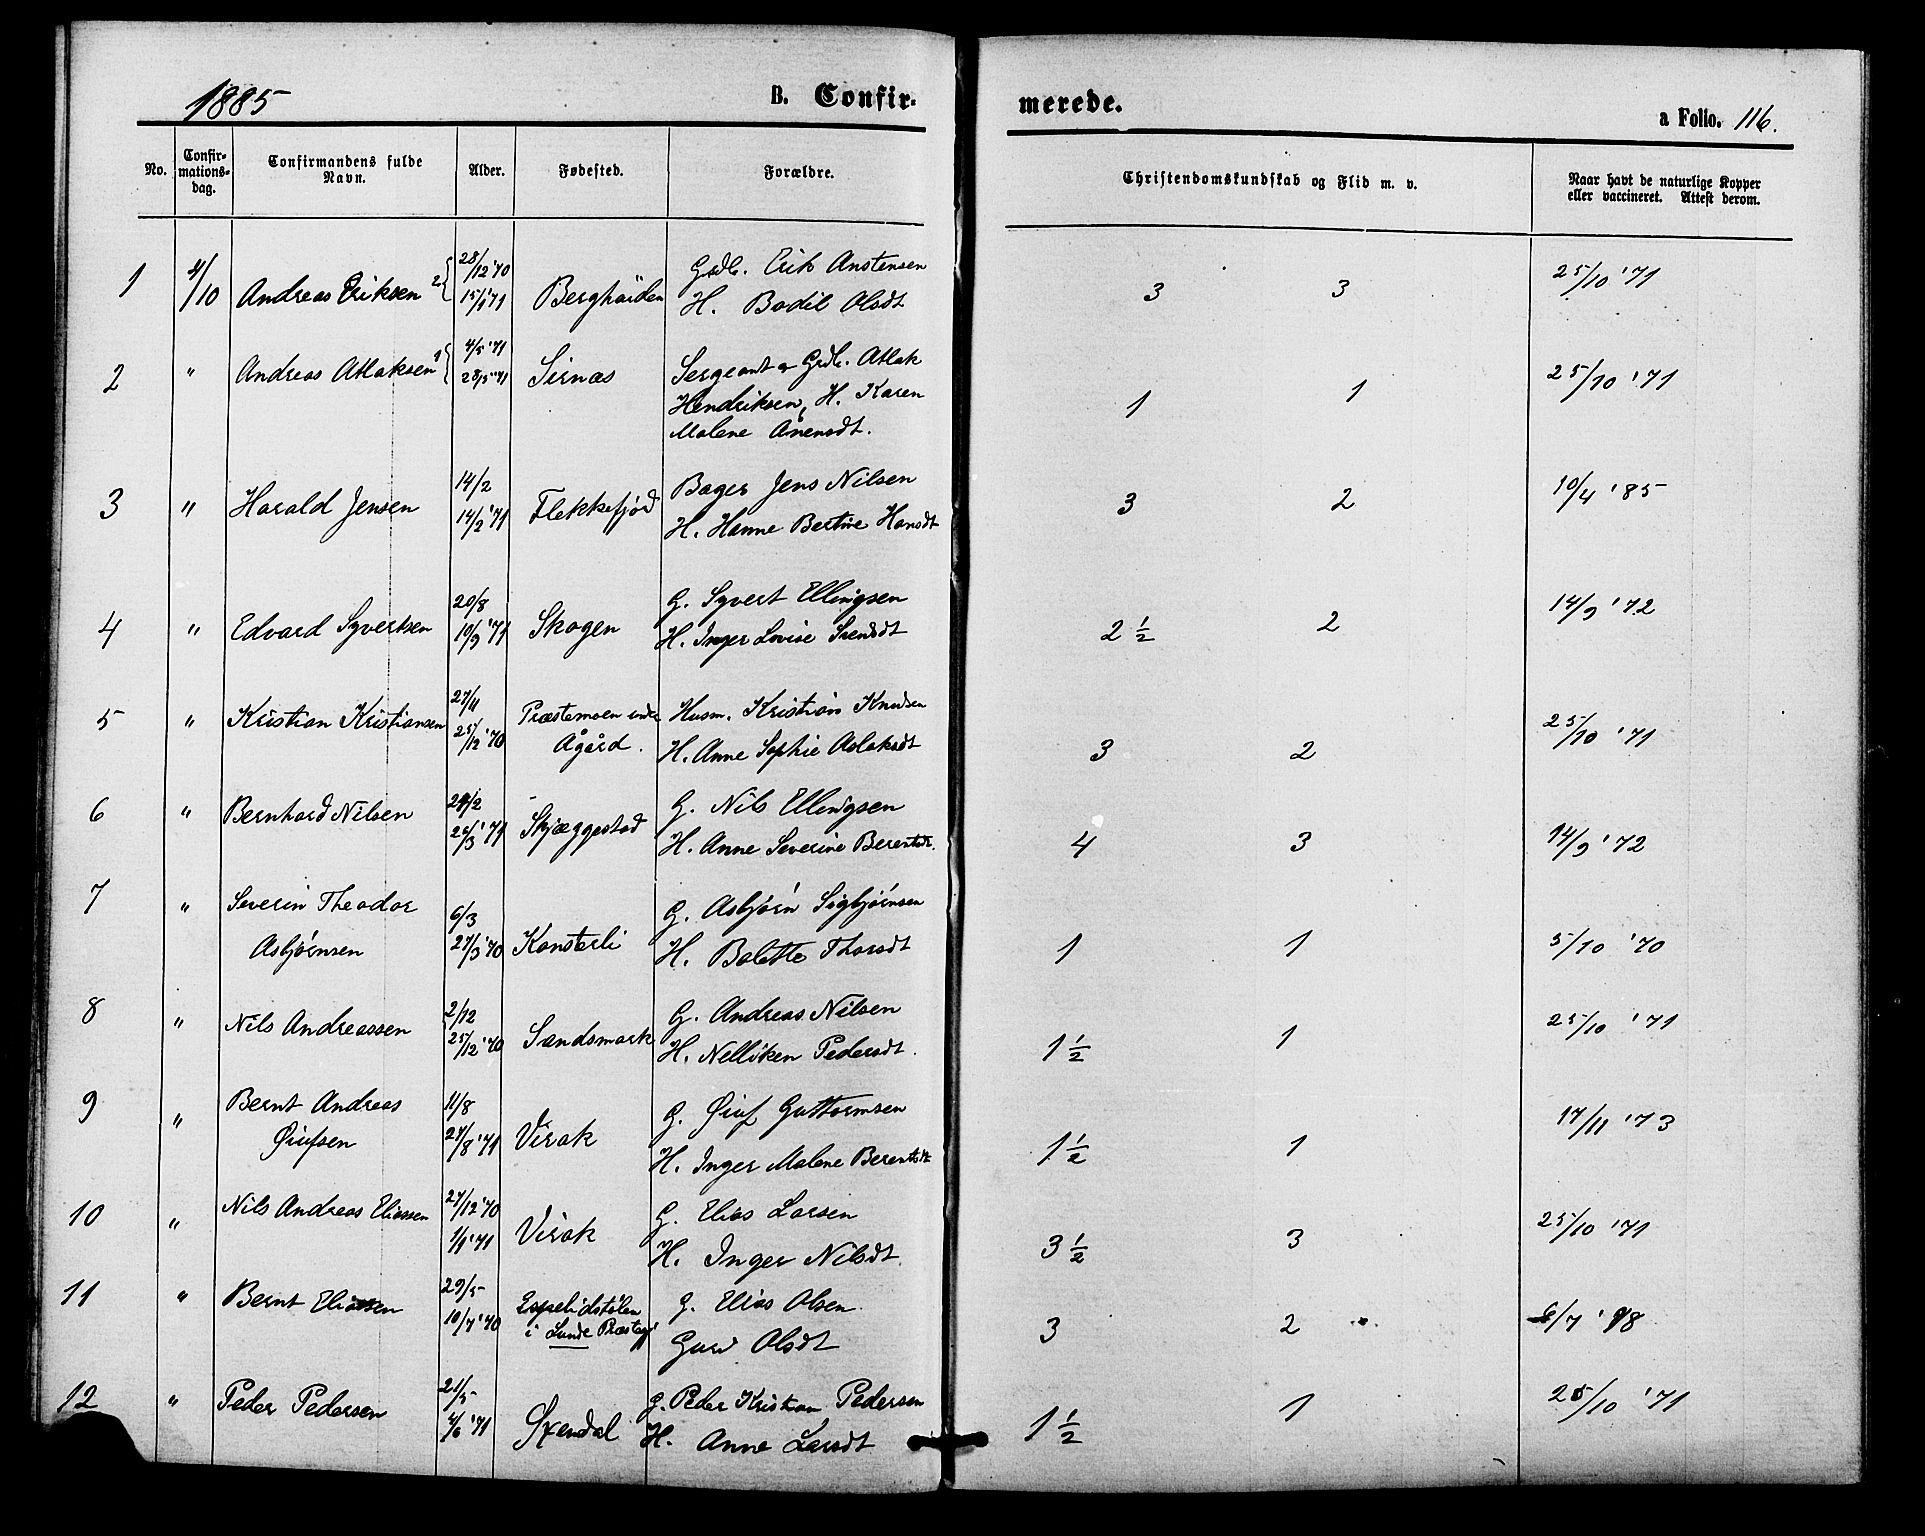 1885 B. Confir- merede. a Folio. 116.
No. Confir-mations-dag. Confirmandens fulde Navn. Alder. Fødested. Forældre. Christendomskundskab og Flid m. v. Naar havt de naturlige Kopper eller vaccineret. Attest derom.
28/12 '70 Grdb. Erik Anstensen 25/10 '71
1 4/10 Andreas Eriksen 2 15/1 '71 H. Bodil Olsdt 3 3
4/5 '71 Sergeant & Grdb. Atlak 25/10 '71
2 " Andreas Atlaksen 1 28/5 '71 Sirnas Hendriksen, H. Karen 1 1
Malene Ånensdt.
14/2 Bager Jens Nilsen 10/4 '85
3 " Harald Jensen 14/2 '71 Flekkefjord H. Hanne Bertine Hansdt 3 2
20/8 G. Syvert Ellingsen 14/9 '72
4 " Edvard Syvertsen 10/9 '71 Skogen H. Inger Lovise Svendsdt 2 1/2 2
27/11 Præstemoen under Husm. Kristian Knudsen 25/10 '71
5 " Kristian Kristiansen 25/12 '70 Ågård. H. Anne Sophie Aslaksdt 3 2
24/2 G. Nils Ellingsen
6 " Bernhard Nilsen 26/3 '71 Skjæggestad H. Anne Severine Berentsdt. 4 3 14/9 '72
7 " Severin Theodor 6/3 G. Asbjørn Sigbjørnsen
Asbjørnsen 27/3 '70 Konsterli H. Bolette Thorsdt 1 1 5/10 '70
8 " Nils Andreassen 2/12 G. Andreas Nilsen 25/10 '71
25/12 '70 Sandsmark H. Nelliken Pedersdt. 1 1/2 1
9 " Bernt Andreas 11/8 G. Øiuf Guttormsen 17/11 '73
Øiufsen 27/8 '71 Virak H. Inger Malene Berentsdt 1 1/2 1
10 " Nils Andreas Eliassen 27/12 '70 G. Elias Larsen 25/10 '71
1/1 '71 Virak H. Inger Nilsdt. 3 1/2 3
11 " Bernt Eliassen 29/5 Espelidstølen G. Elias Olsen
10/7 '70 i Lunde Præstegj. Guro Olsdt 3 2 6/7
12 " Peder Pedersen 21/5 G. Peder Kristian Pedersen 25/10 '71
4/6 '71 Øxendal H. Anne Larsdt 1 1/2 1